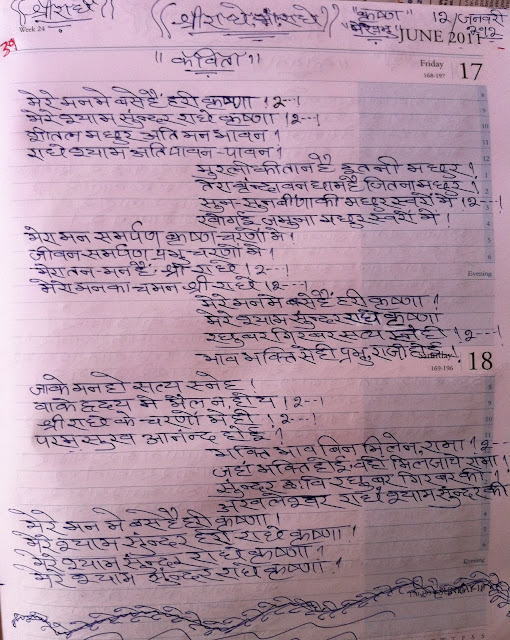 श्रीराधे
श्रीराधे श्रीराधे
"कृष्णा"
12/जनवरी
2012
39
Week 24
JUNE 2011
"कविता"
Friday
168-197
17
मेरे मन मे बसे हैं हरी कृष्णा ।२--।
मेरे श्याम सुंन्दर राधे कृष्णा ।२--।
शीतल मधुर अति मन भावन ।
राधे श्याम अति पावन-पावन ।
मुरली की तान है इतनी मधुर ।
तेरा वृन्दावन धाम है जितना मधुर ।
सुन-सुन वीणा की मधुर स्वरों में ।२---।
जमुना मधुर स्वरों में ।
मेरा मन समर्पण कृष्णा चरणों में ।
जीवन समर्पण प्रभु चरणों में ।
मेरा तन-मन है, श्री राधे ।२--।
मेरा मन का चमन श्री राधे ।२--।
मेरे मन में बसे हैं हरी कृष्णा ।
मेरे श्याम सुंन्दर राधे कृष्णा ।
रघुवर गिरवर सत्य ही ।२---।
भाव भक्ति से ही प्रभु राजी होई ।
Evening
Saturday
169-196
18
जाके मन हो सत्य स्नेह ।
वाके हृदय मे मैल न होय ।२---।
श्री राधे के चरणों में ही ।२--।
परम सुख आनन्द होई ।
भक्ति भाव बिन मिले न, रामा ।२--
जहाँ भक्ति होई, वही मिल जाये रामा ।
सुंन्दर छवि रघुवर गिरवर की ।
अखलेश्वर राधे श्याम सुंन्दर की
मेरे मन मे बसे है हरी कृष्णा ।
मेरे श्याम सुंन्दर हरी राधे कृष्णा ।
मेरे श्याम सुंन्दर राधे कृष्णा ।
मेरे श्याम सुंन्दर राधे कृष्णा ।